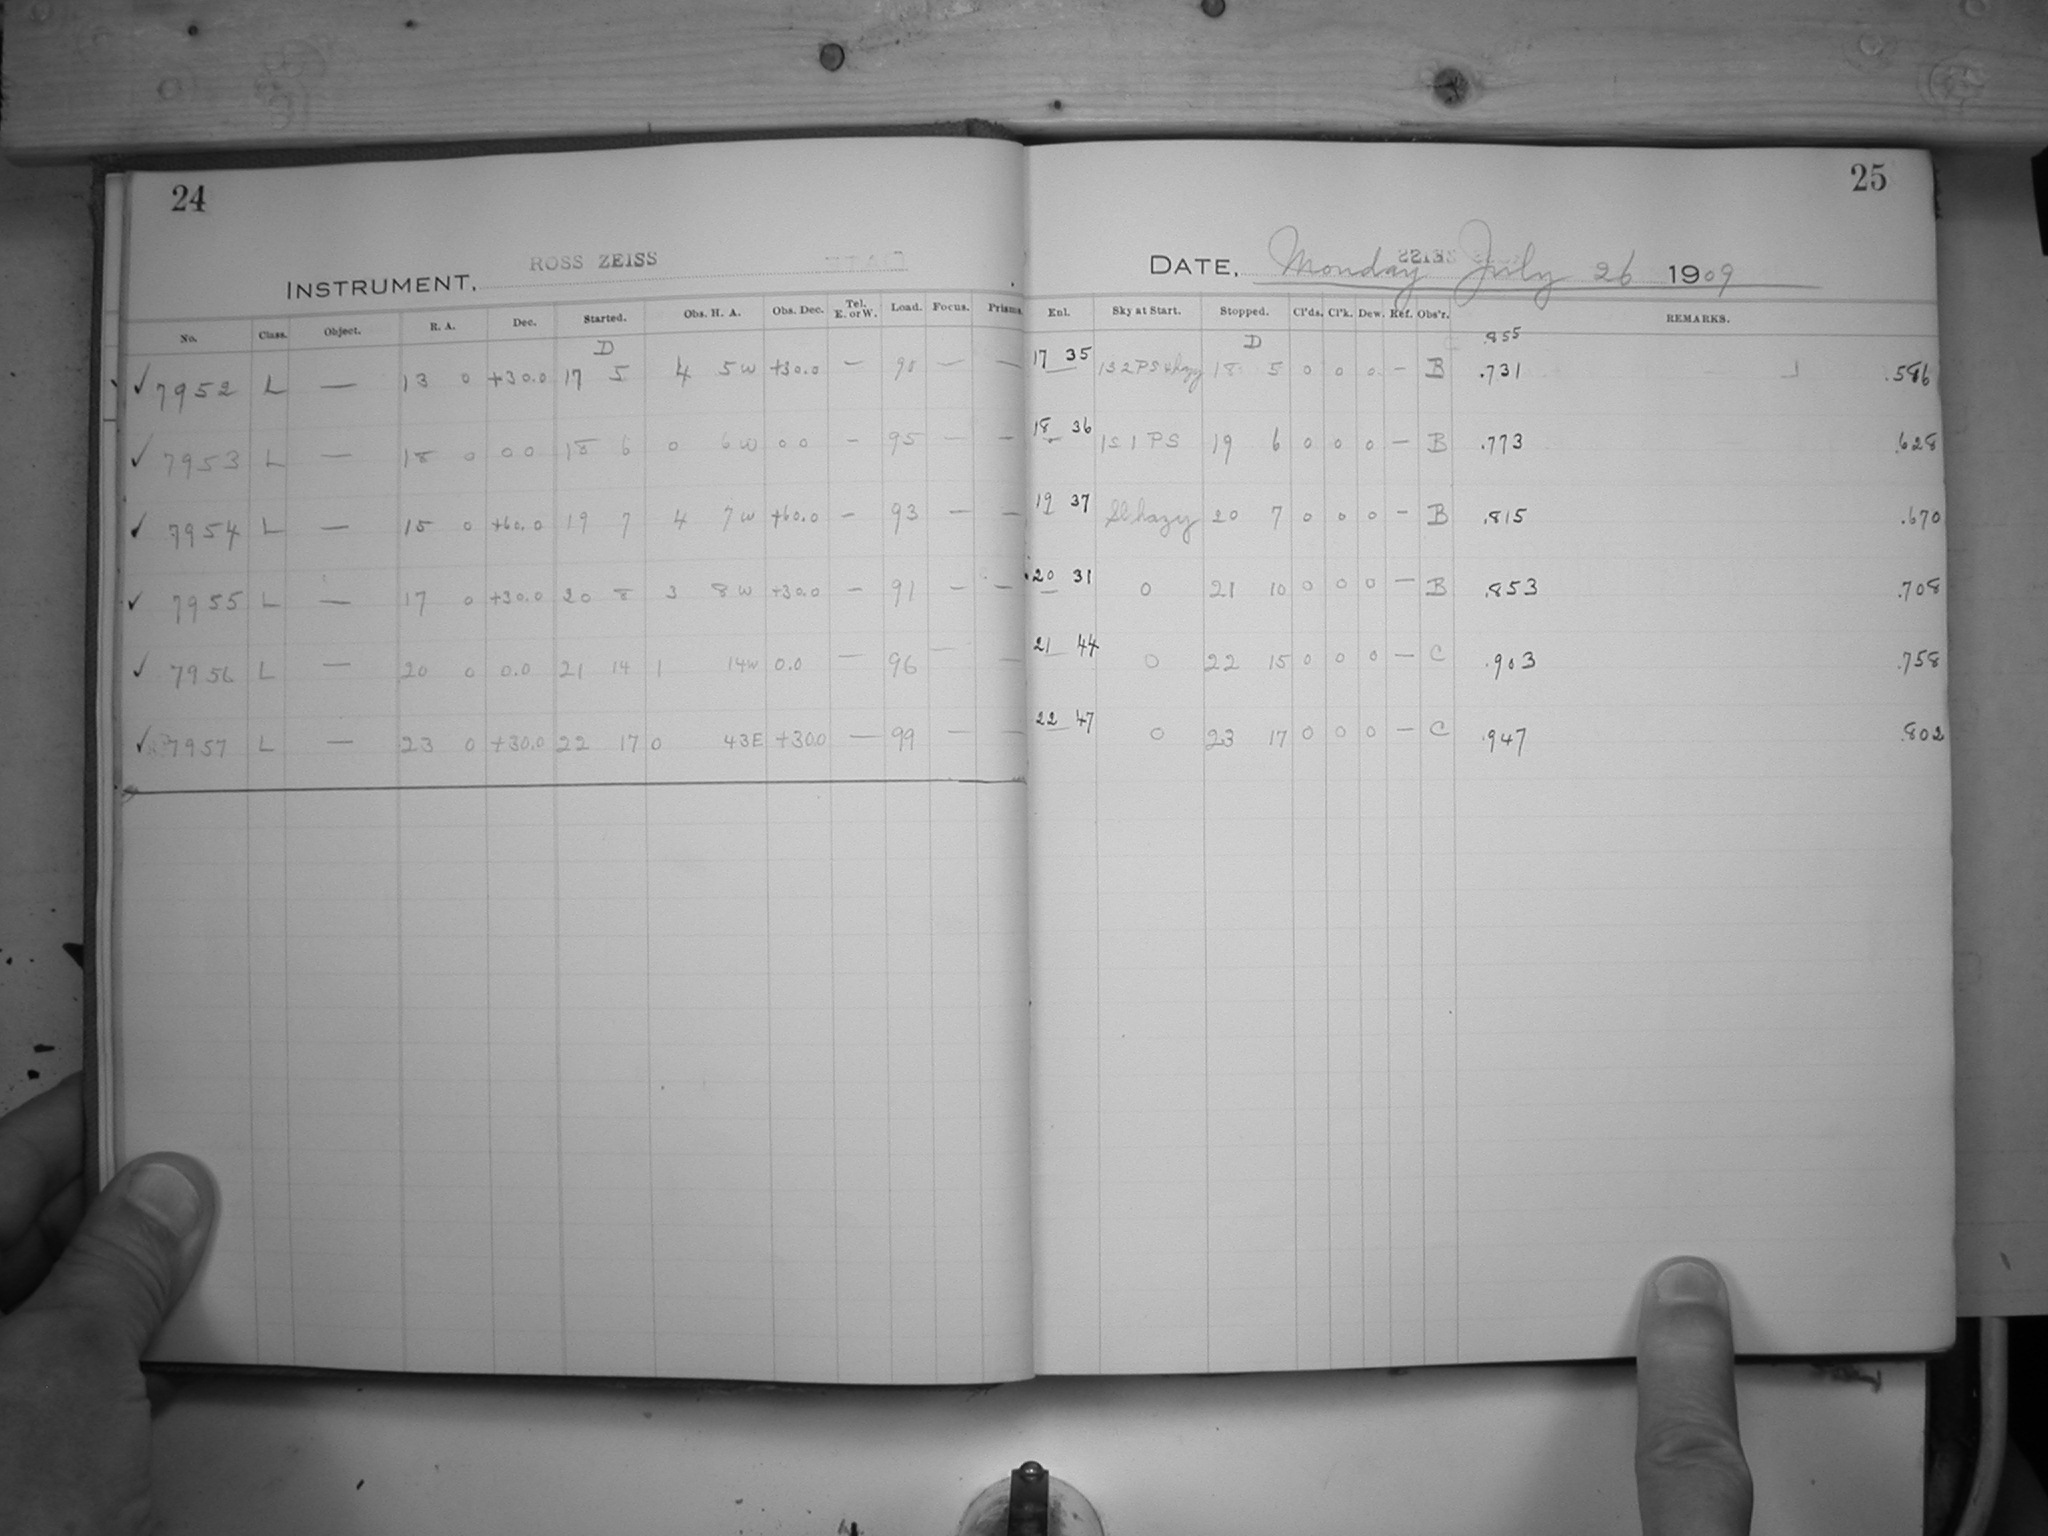 24
25
ROSS ZEISS
INSTRUMENT,
DATE, Monday July 26 1909
No. Class. Object. R. A. Dec. Started. Obs. H. A. Obs. Dec. Tel. E. or W. Load. Focus. Prisms. Enl. Sky at Start. Stopped. Cl'ds. Cl'k. Dew. Ref. Obs'r. REMARKS.
D D .855
✓ 7952 L — 13 0 +30.0 17 5 4 5W +30.0 — 90 — — 17 35 18 5 0 0 0 — B .731 .586
✓ 7953 L — 18 0 0 0 18 6 0 6W 0 0 — 95 — — 18 36 1S 1 PS 19 6 0 0 0 — B .773 .628
✓ 7954 L — 15 0 +60.0 19 7 4 7W +60.0 — 93 — — 19 37 Sl hazy 20 7 0 0 0 — B .815 .670
✓ 7955 L — 17 0 +30.0 20 8 3 8W +30.0 — 91 — — 20 31 0 21 10 0 0 0 — B .853 .708
✓ 7956 L — 20 0 0.0 21 14 1 14W 0.0 — 96 — — 21 44 0 22 15 0 0 0 — C .903 .758
✓ 7957 L — 23 0 +30.0 22 17 0 43E +30.0 — 99 — — 22 47 0 23 17 0 0 0 — C .947 .802